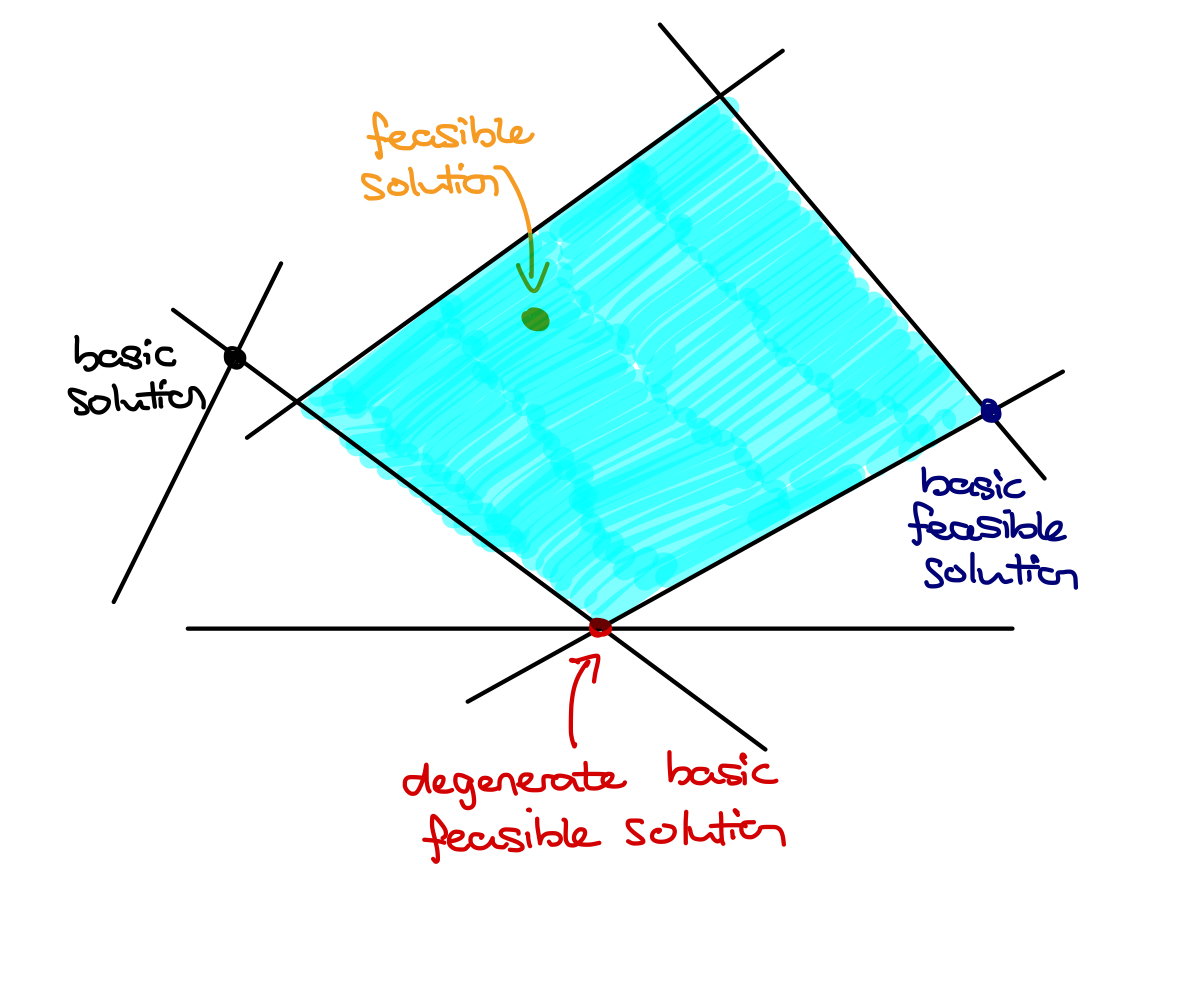 feasible
solution
basic
solution
basic
feasible
solution
degenerate basic
feasible solution